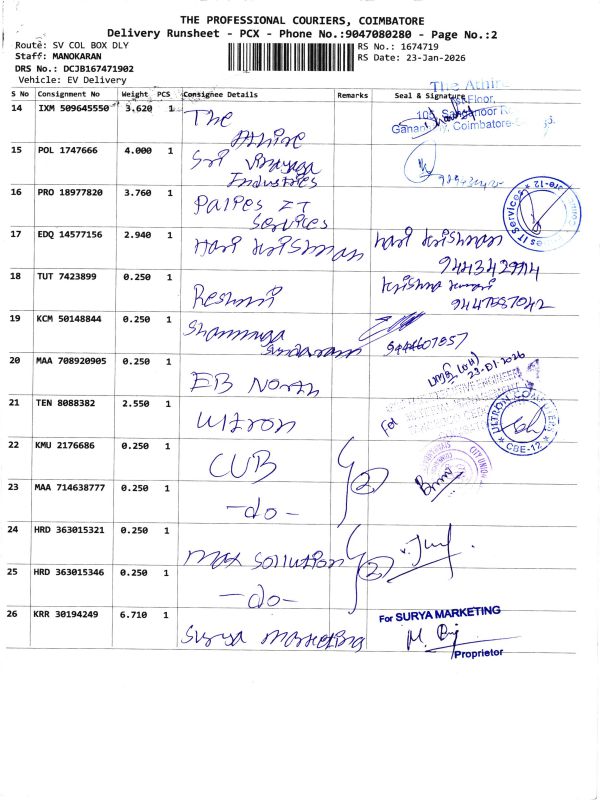 THE PROFESSIONAL COURIERS, COIMBATORE
Delivery Runsheet - PCX - Phone No.:9047080280 - Page No.:2
Route: SV COL BOX DLY
RS No.: 1674719
Staff: MANOKARAN
RS Date: 23-Jan-2026
DRS No.: DCJB167471902
Vehicle: EV Delivery
S No Consignment No Weight PCS Consignee Details Remarks Seal & Signature
The Athire
14 IXM 509645550 3.620 1 The Athire
Floor,
105,
Coimbatore-
15 POL 1747666 4.000 1 Sri Vinayaga Industries
16 PRO 18977820 3.760 1 Palpes IT Services
IT Services
17 EDQ 14577156 2.940 1 Hari Krishnan
18 TUT 7423899 0.250 1 Reshmi
19 KCM 50148844 0.250 1 Shanmuga Sundaram
20 MAA 708920905 0.250 1 EB North
23-01-2026
21 TEN 8088382 2.550 1 Ultron
ULTRON
CBE-12
22 KMU 2176686 0.250 1 CUB
2
CITY UNION
23 MAA 714638777 0.250 1 -do-
24 HRD 363015321 0.250 1 Max Sollution
2
25 HRD 363015346 0.250 1 -do-
26 KRR 30194249 6.710 1 Surya Marketing
For SURYA MARKETING
Proprietor